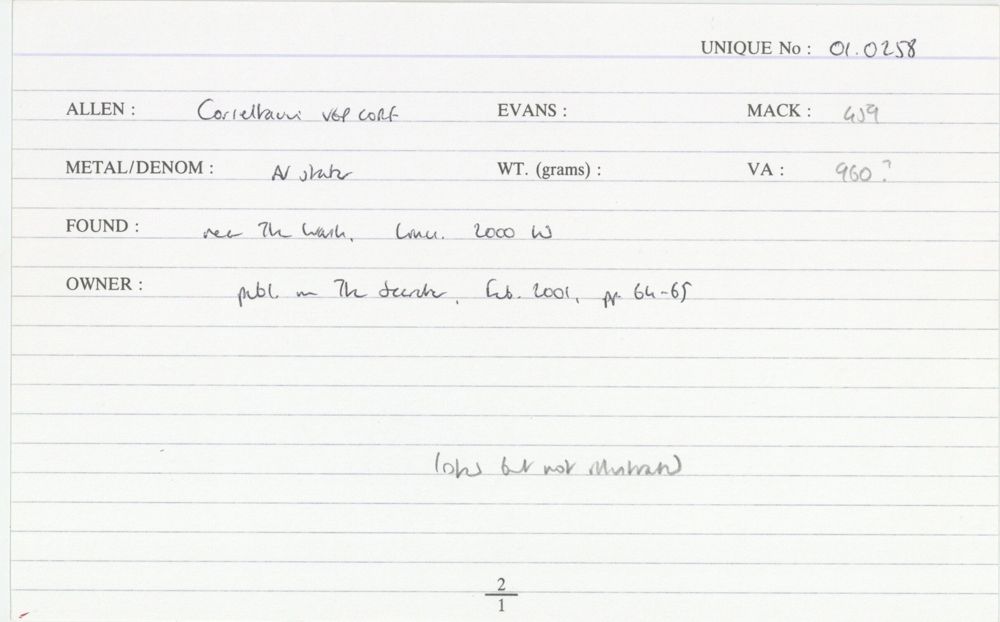 UNIQUE No : 01.0258
ALLEN : Corieltauvi VEP CORF EVANS : MACK : 459
METAL/DENOM : AV stater WT. (grams) : VA : 960?
FOUND : near The Wash, Lincs. 2000 W
OWNER : publ. in The Searcher, Feb. 2001, pp. 64-65
but not illustrated)
2
1